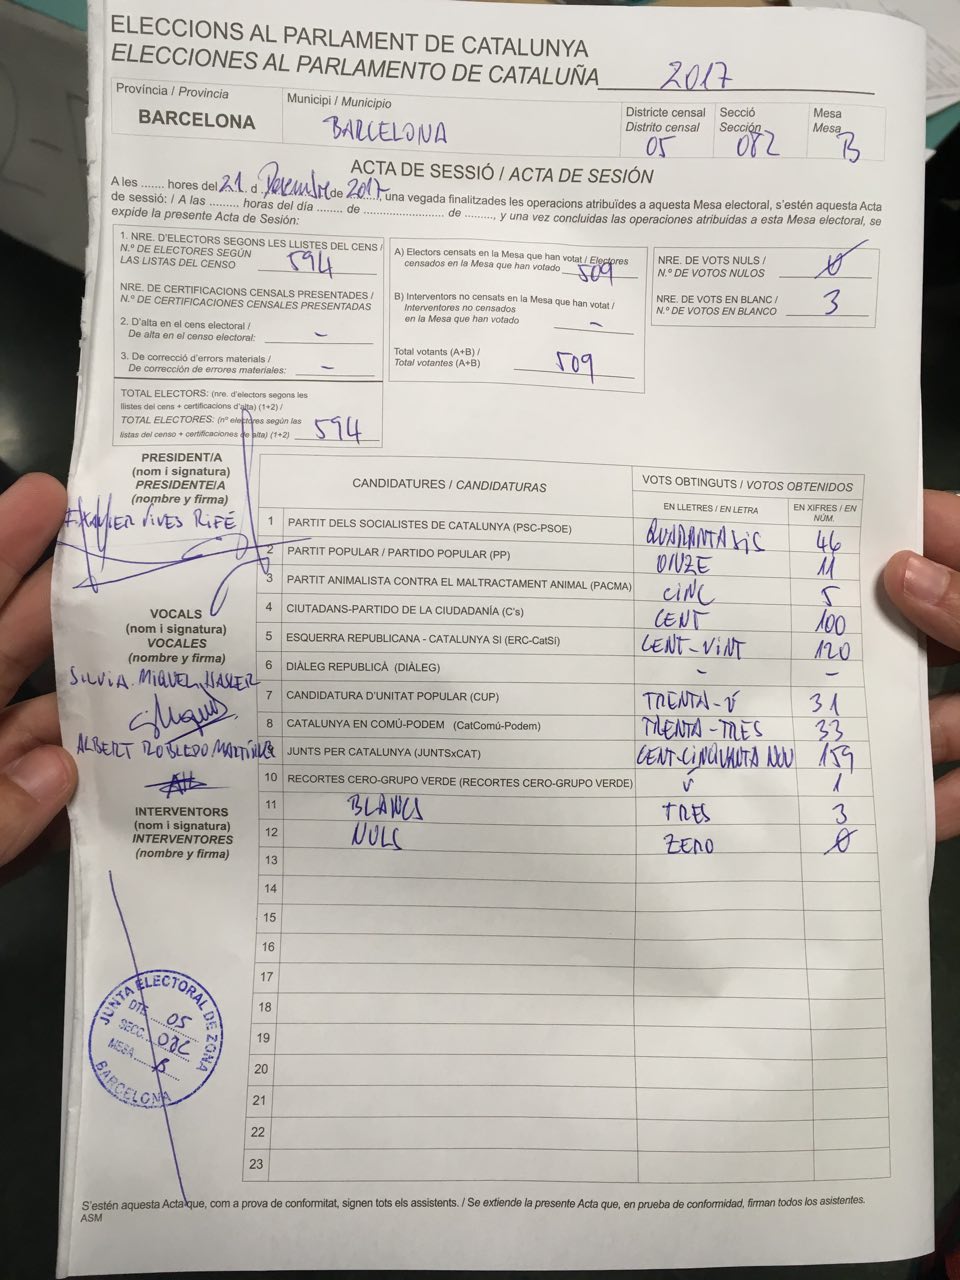 ELECCIONS AL PARLAMENT DE CATALUNYA
ELECCIONES AL PARLAMENTO DE CATALUÑA 2017
Província / Provincia
BARCELONA
Municipi / Municipio
BARCELONA
Districte censal
Distrito censal
05
Secció
Sección
082
Mesa
Mesa
B
ACTA DE SESSIÓ / ACTA DE SESIÓN
A les ....... hores del 21. d Desembre de 2017, una vegada finalitzades les operacions atribuïdes a aquesta Mesa electoral, s'estén aquesta Acta
de sessió: / A las ......... hores del día ........ de ........................ de ........., y una vez concluidas las operaciones atribuidas a esta Mesa electoral, se
expide la presente Acta de Sesión:
1. NRE. D'ELECTORS SEGONS LES LLISTES DEL CENS /
N.º DE ELECTORES SEGÚN
LAS LISTAS DEL CENSO 594
NRE. DE CERTIFICACIONS CENSALS PRESENTADES /
N.º DE CERTIFICACIONES CENSALES PRESENTADAS
2. D'alta en el cens electoral /
De alta en el censo electoral: –
3. De correcció d'errors materials /
De corrección de errores materiales: –
TOTAL ELECTORS: (nre. d'electors segons les
llistes del cens + certificacions d'alta) (1+2) /
TOTAL ELECTORES: (nº electores según las
listas del censo + certificaciones de alta) (1+2) 594
A) Electors censats en la Mesa que han votat / Electores
censados en la Mesa que han votado 509
B) Interventors no censats en la Mesa que han votat /
Interventores no censados
en la Mesa que han votado –
Total votants (A+B) /
Total votantes (A+B) 509
NRE. DE VOTS NULS /
N.º DE VOTOS NULOS 0
NRE. DE VOTS EN BLANC /
N.º DE VOTOS EN BLANCO 3
PRESIDENT/A
(nom i signatura)
PRESIDENTE/A
(nombre y firma)
XAVIER VIVES RIFÉ
VOCALS
(nom i signatura)
VOCALES
(nombre y firma)
SILVIA MIQUEL
ALBERT ROBLEDO MARTÍNEZ
INTERVENTORS
(nom i signatura)
INTERVENTORES
(nombre y firma)
CANDIDATURES / CANDIDATURAS
VOTS OBTINGUTS / VOTOS OBTENIDOS
EN LLETRES / EN LETRA
EN XIFRES / EN NÚM.
1 PARTIT DELS SOCIALISTES DE CATALUNYA (PSC-PSOE) QUARANTA SIS 46
2 PARTIT POPULAR / PARTIDO POPULAR (PP) ONZE 11
3 PARTIT ANIMALISTA CONTRA EL MALTRACTAMENT ANIMAL (PACMA) CINC 5
4 CIUTADANS-PARTIDO DE LA CIUDADANÍA (C's) CENT 100
5 ESQUERRA REPUBLICANA - CATALUNYA SI (ERC-CatSí) CENT-VINT 120
6 DIÀLEG REPUBLICÀ (DIÀLEG) – –
7 CANDIDATURA D'UNITAT POPULAR (CUP) TRENTA-Ú 31
8 CATALUNYA EN COMÚ-PODEM (CatComú-Podem) TRENTA-TRES 33
9 JUNTS PER CATALUNYA (JUNTSxCAT) CENT-CINQUANTA NOU 159
10 RECORTES CERO-GRUPO VERDE (RECORTES CERO-GRUPO VERDE) Ú 1
11 BLANCS TRES 3
12 NULS ZERO 0
13
14
15
16
17
18
19
20
21
22
23
JUNTA ELECTORAL DE ZONA
DTE. 05
SECC. 082
MESA B
BARCELONA
S'estén aquesta Acta que, com a prova de conformitat, signen tots els assistents. / Se extiende la presente Acta que, en prueba de conformidad, firman todos los asistentes.
ASM